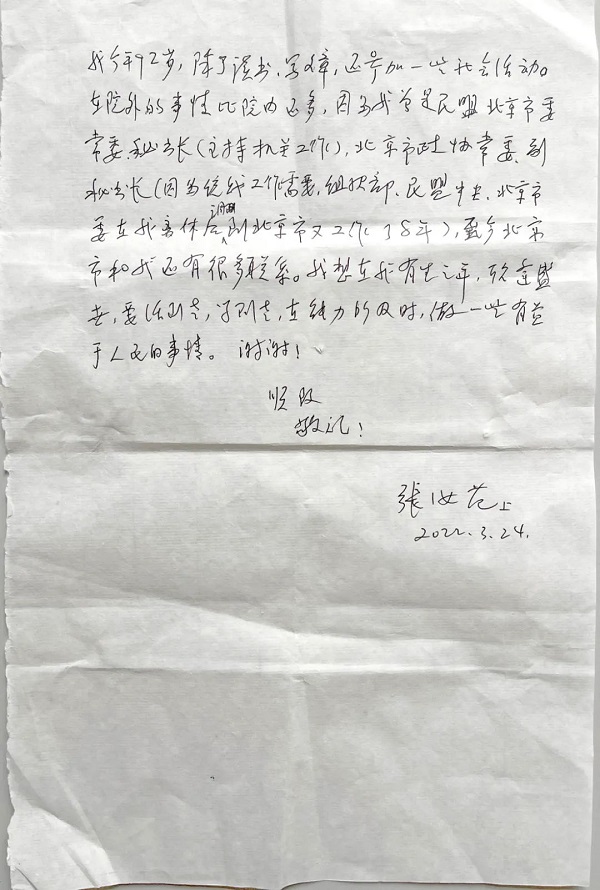 我今年92岁，除了读书、写文章，还参加一些社会活动。
在院外的事情比院内还多，因为我曾是民盟北京市委
常委、秘书长（主持机关工作），北京市政协常委、副
秘书长（因为统战工作需要，组织部、民盟中央、北京市
委在我离休后调到北京市又工作了8年），至今北京
市和我还有很多联系。我想在我有生之年，欣逢盛
世，要活到老，学到老，在能力所及时，做一些有益
于人民的事情。谢谢！
顺致
敬礼！
張女范上
2022.3.24.